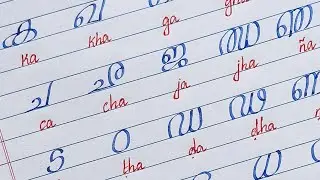 ക ഖ ഗ
ka kha ga
ച ഛ ജ ഝ ഞ
ca cha ja jha ña
ട ഠ ഡ ഢ ണ
ṭha ḍa ḍha